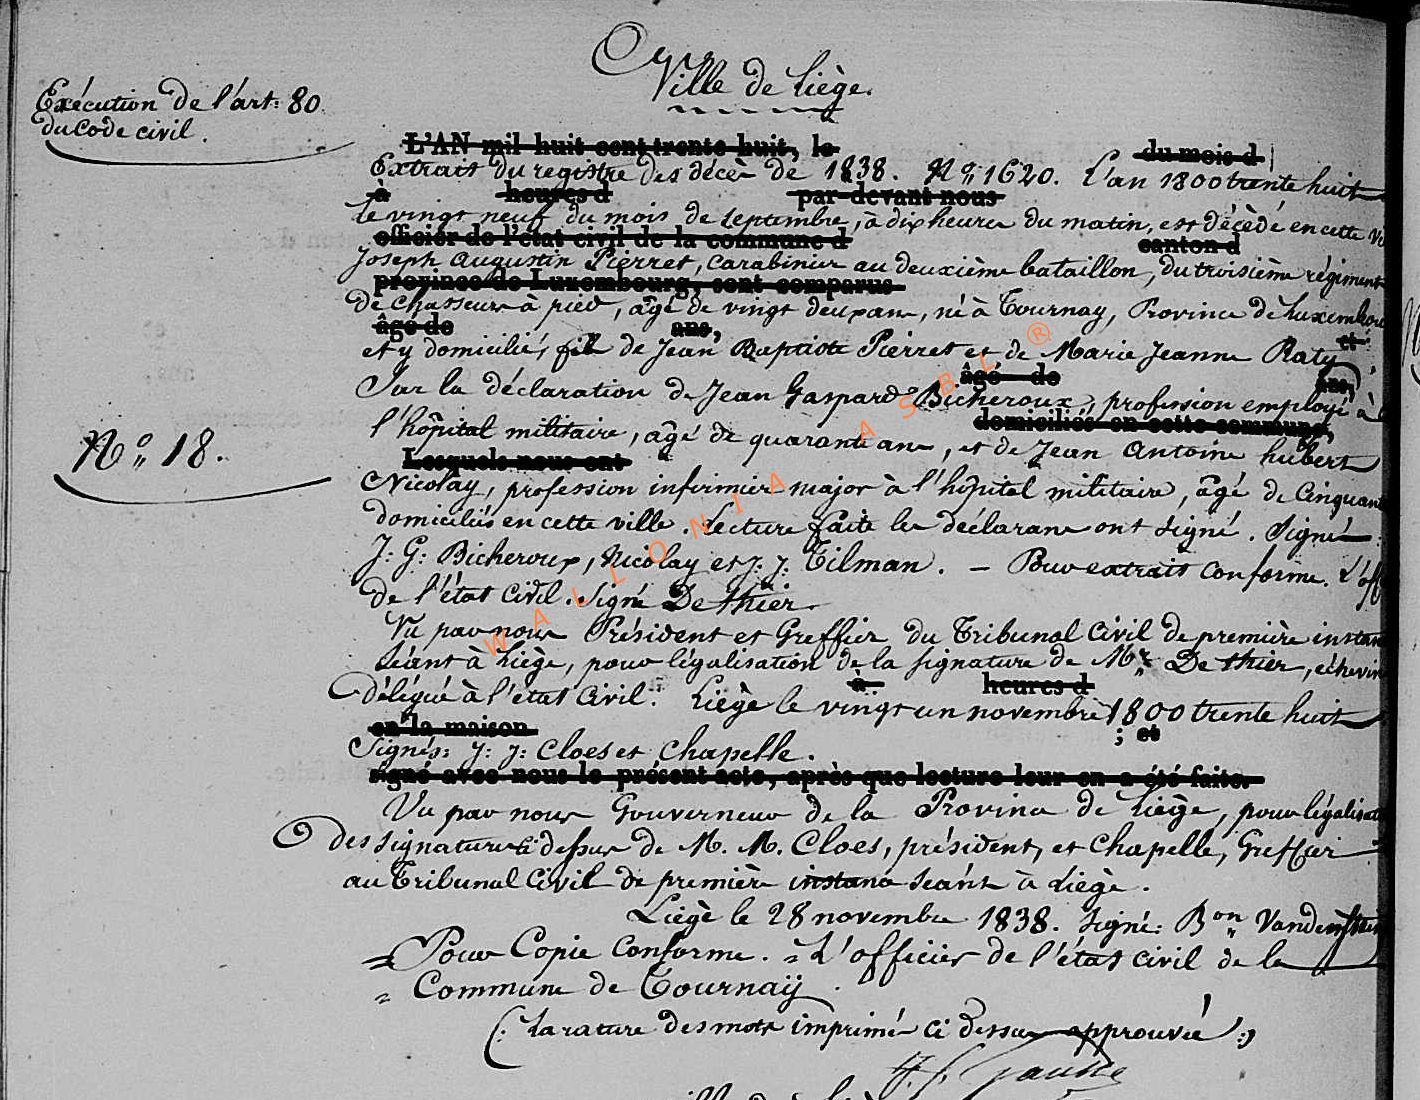 Ville de Liège.
Exécution de l'art: 80.
du Code civil.
L'AN mil huit cent trente huit, le
du mois d
Extrait du registre des décès de 1838. N° 1620. L'an 1800 trente huit
à heures d par-devant nous
le vingt neuf du mois de septembre, à dix heures du matin, est décédé en cette
officier de l'état civil de la commune d canton d
Joseph Augustin Pierret, carabinier au deuxième bataillon, du troisième régiment
province de Luxembourg, sont comparus
de chasseurs à pied, âgé de vingt deux ans, né à Tournay, Province de Luxembou
âgé de ans, et
et y domicilié, fils de Jean Baptiste Pierret et de Marie Jeanne Raty
âgé de ans,
Sur la déclaration de Jean Gaspard Bicheroux, profession employé à
domiciliés en cette commune,
l'hôpital militaire, âgé de quarante ans, et de Jean Antoine hubert
Lesquels nous ont
N° 18.
Nicolay, profession infirmier major à l'hôpital militaire, âgé de Cinquan
domiciliés en cette ville. Lecture faite les déclarans ont signé. Signé
J: G: Bicheroux, Nicolay et J. J. Tilman. — Pour extrait conforme. L'off
de l'état Civil. Signé De thier.
Vu par nous Président et Greffier du Tribunal Civil de première instan
séant à Liège, pour légalisation de la signature de Mr De thier, échevin
à heures d
Délégué à l'état Civil. Liège le vingt un novembre 1800 trente huit
en la maison ; et
Signés: J: J: Cloes et Chapelle.
signé avec nous le présent acte, après que lecture leur en a été faite.
Vu par nous Gouverneur de la Province de Liège, pour légalisat
des signatures ci dessus de M. M. Cloes, président, et Chapelle, Greffier
au Tribunal Civil de première instance séant à Liège.
Liège le 28 novembre 1838. Signé: Bon
Pour Copie Conforme. = L'officier de l'état civil de la
= Commune de Tournaÿ.
(: La rature des mots imprimés ci dessus approuvée :)
WALLONIA ASBL ®